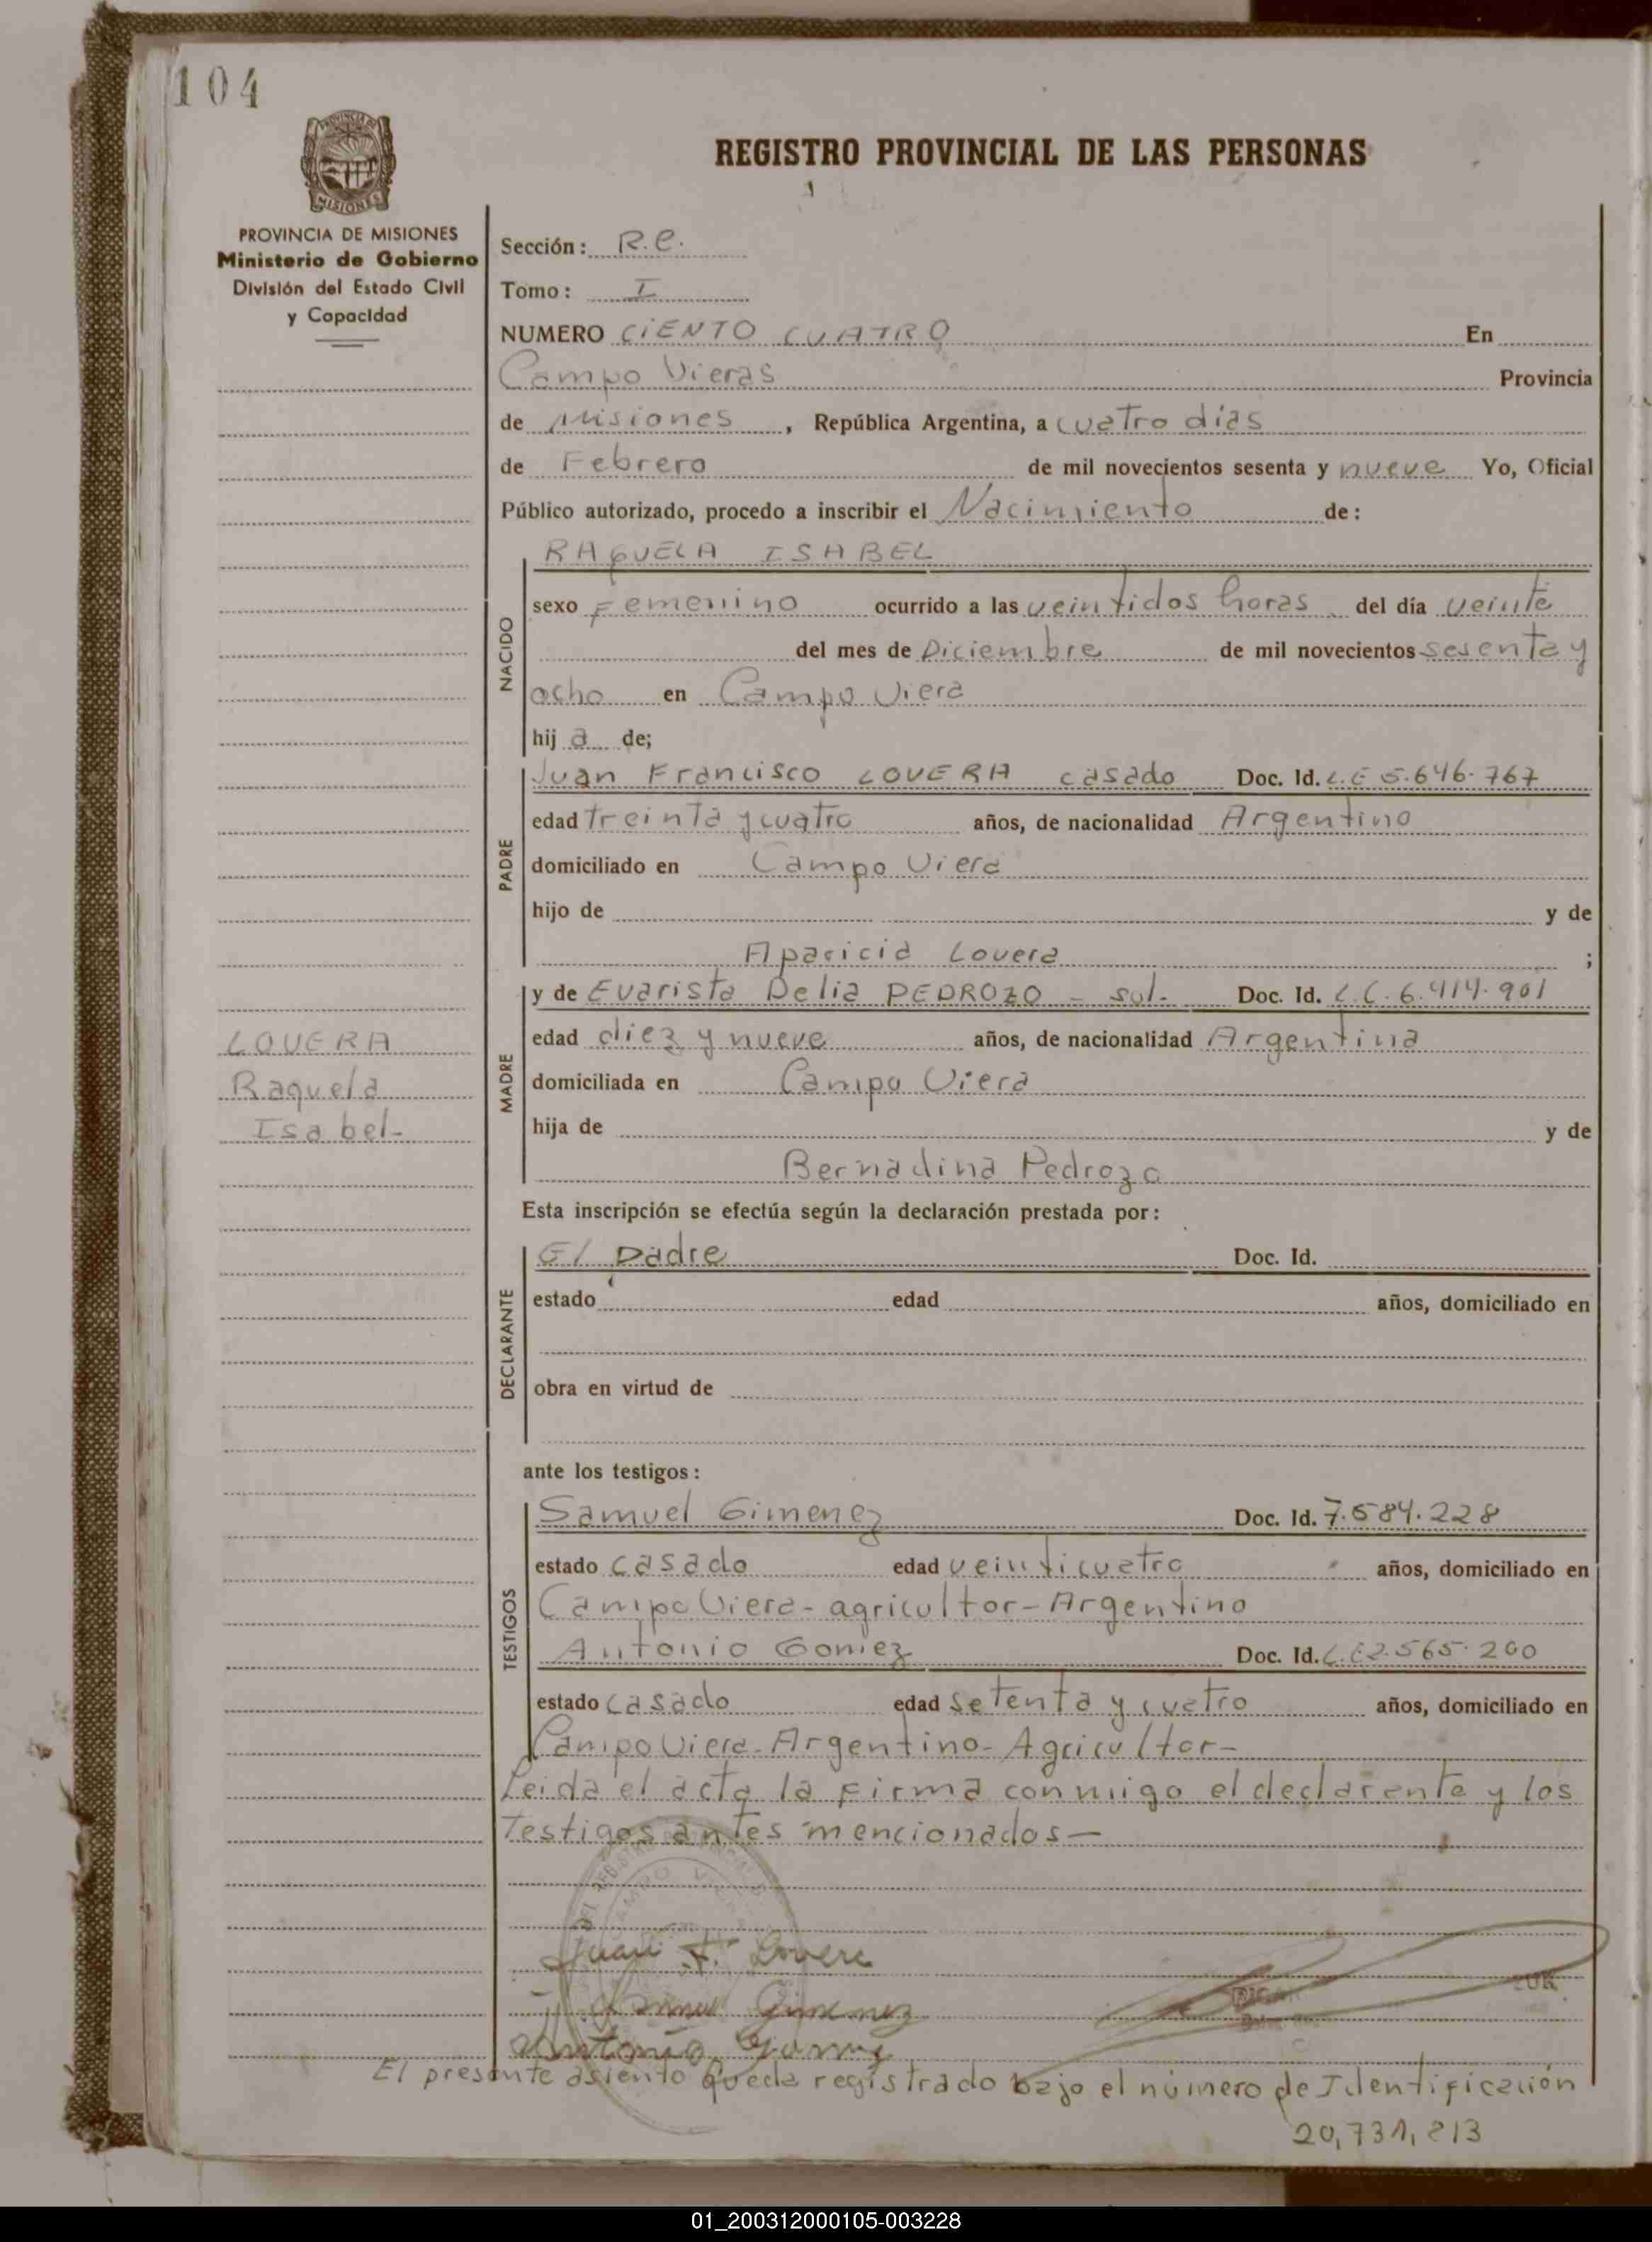 104
PROVINCIA DE MISIONES
REGISTRO PROVINCIAL DE LAS PERSONAS
PROVINCIA DE MISIONES
Ministerio de Gobierno
División del Estado Civil
y Capacidad
Sección: R.C.
Tomo: I
NUMERO CIENTO CUATRO En
Campo Vieras Provincia
de Misiones, República Argentina, a cuatro dias
de Febrero de mil novecientos sesenta y nueve Yo, Oficial
Público autorizado, procedo a inscribir el Nacimiento de:
NACIDO
RAQUELA ISABEL
sexo Femenino ocurrido a las veintidos horas del día veinte
del mes de Diciembre de mil novecientos sesenta y
ocho en Campo Viera
hij a de;
PADRE
Juan Francisco LOVERA casado Doc. Id. L.E 5.646.767
edad treinta y cuatro años, de nacionalidad Argentino
domiciliado en Campo Viera
hijo de y de
Aparicia Lovera ;
MADRE
y de Evarista Delia PEDROZO - sol- Doc. Id. L.C. 6.414.901
edad diez y nueve años, de nacionalidad Argentina
domiciliada en Campo Viera
hija de y de
Bernadina Pedrozo
LOVERA
Raquela
Isabel-
Esta inscripción se efectúa según la declaración prestada por:
DECLARANTE
El padre Doc. Id.
estado edad años, domiciliado en
obra en virtud de
ante los testigos:
TESTIGOS
Samuel Gimenez Doc. Id. 7.584.228
estado casado edad veinticuatro años, domiciliado en
Campo Viera-agricultor-Argentino
Antonio Gomez Doc. Id. L.E 2.565.200
estado casado edad setenta y cuatro años, domiciliado en
Campo Viera-Argentino-Agricultor-
Leida el acta la firma conmigo el declarante y los
Testigos antes mencionados—
Juan F. Lovera
Samuel Gimenez
Antonio Gomez
El presente asiento queda registrado bajo el número de Identificación
20,731,213
01_200312000105-003228